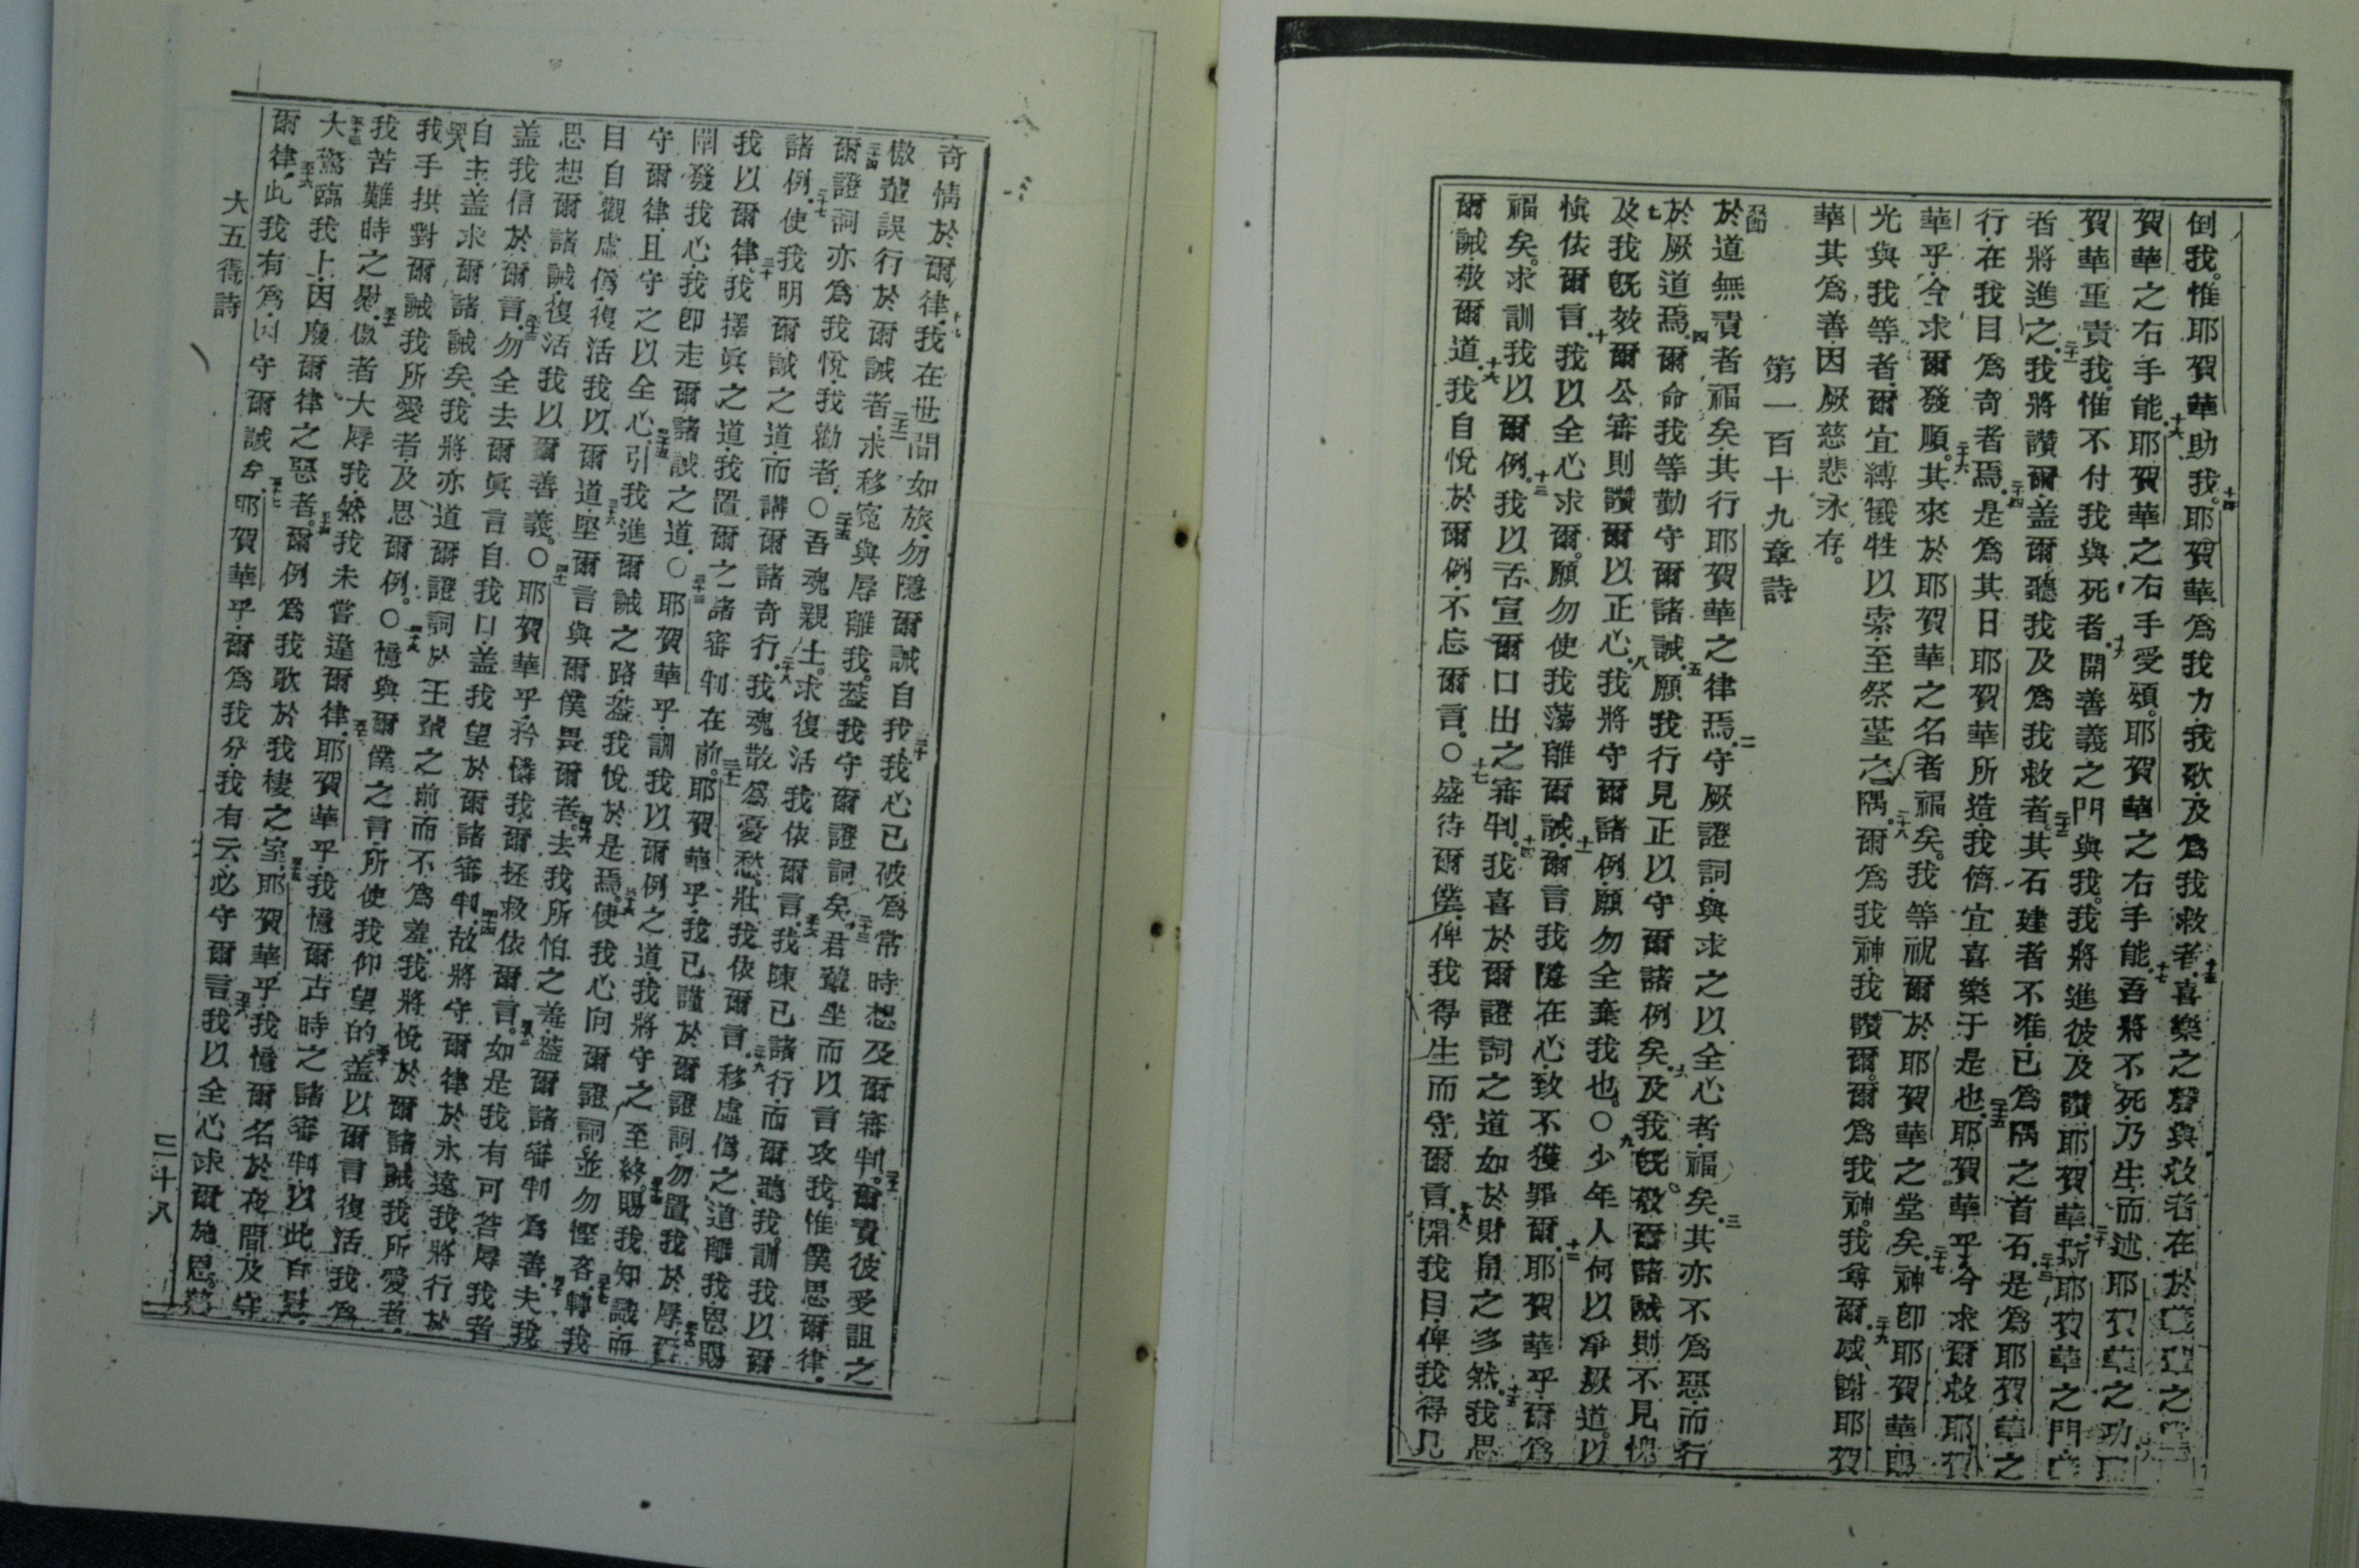 倒我。惟耶賀華助我。耶賀華為我力、我歌、及為我救者。喜樂之聲與救者在於
賀華之右手能。耶賀華之右手受頌。耶賀華之右手能。吾將不死乃生、而述耶賀華之功。
賀華重責我。惟不付我與死者。開善義之門與我。我將進彼及讚耶賀華。斯耶賀華之門、
者將進之。我將讚爾、盖爾聽我及為我救者。其石建者不准、已為隅之首石。是為耶賀華之
行、在我目為奇者焉。是為其日耶賀華所造、我儕宜喜樂于是也。耶賀華乎、今求爾救、耶賀
華乎、今求爾發順。其來於耶賀華之名者福矣。我等祝爾於耶賀華之堂矣。神即耶賀華、
光與我等者、爾宜縛犧牲以索、至祭臺之隅。爾為我神、我讚爾。爾為我神。我尊爾。感謝耶賀
華其為善、因厥慈悲永存。
第一百十九章詩
於道無責者福矣、其行耶賀華之律焉。守厥證詞、與求之以全心者、福矣。其亦不為惡、而行
於厥道焉。爾命我等勤守爾諸誡。願我行見正以守爾諸例矣。及我既敬爾諸誡則不見愧
及我既效爾公審則讚爾以正心。我將守爾諸例、願勿全棄我也。○少年人何以凈厥道。以
慎依爾言。我以全心求爾。願勿使我蕩離爾誡。爾言我隱在心、致不獲罪爾。耶賀華乎、爾為
福矣。求訓我以爾例。我以舌宣爾口出之審判。我喜於爾證詞之道如於財帛之多然。我思
爾誡、敬爾道。我自悅於爾例、不忘爾言。○盛待爾僕、俾我得生而守爾言。開我目、俾我得見
奇情於爾律。我在世間如旅、勿隱爾誡自我。我心已破為常時想及爾審判。爾責彼受詛之
傲輩誤行於爾誡者。求移寃與辱離我。葢我守爾證詞矣。君輩坐而以言攻我、惟僕思爾律。
爾證詞亦為我悅、我勸者。○吾魂親土。求復活我依爾言。我陳已諸行、而爾聽我。訓我以爾
諸例。使我明爾誡之道、而講爾諸奇行。我魂散為憂愁。壯我依爾言。移虛偽之道離我、恩賜
我以爾律、我擇眞之道、我置爾之諸審判在前。耶賀華乎、我已謹於爾證詞、勿置我於辱。
開發我心、我即走爾諸誡之道。○耶賀華乎、訓我以爾例之道、我將守之至終。賜我知識、而
守爾律、且守之以全心。引我進爾誡之路、葢我悅於是焉。使我心向爾證詞、並勿慳吝。轉我
目自觀虛偽、復活我以爾道。堅爾言與爾僕畏爾者。去我所怕之羞、葢爾諸審判為善。夫我
思想爾諸誡、復活我以爾善義。○耶賀華乎、矜憐我、爾拯救依爾言。如是我有可答辱我者
盖我信於爾言。勿全去爾眞言自我口、盖我望於爾諸審判。故將守爾律於永遠。我將行於
自主、盖求爾諸誡矣。我將亦道爾證詞於王輩之前而不為羞。我將悅於爾諸誡我所愛者。
我手拱對爾誡我所愛者、及思爾例。○憶與爾僕之言、所使我仰望的。盖以爾言復活我為
我苦難時之慰。傲者大辱我、然我未嘗違爾律。耶賀華乎、我憶爾古時之諸審判、以此自慰。
大驚臨我上、因廢爾律之惡者。爾例為我歌於我棲之室。耶賀華乎、我憶爾名於夜間及守
爾律。此我有為、因守爾誡矣。耶賀華乎、爾為我分、我有云、必守爾言。我以全心求爾施恩。
大五得詩
三十八